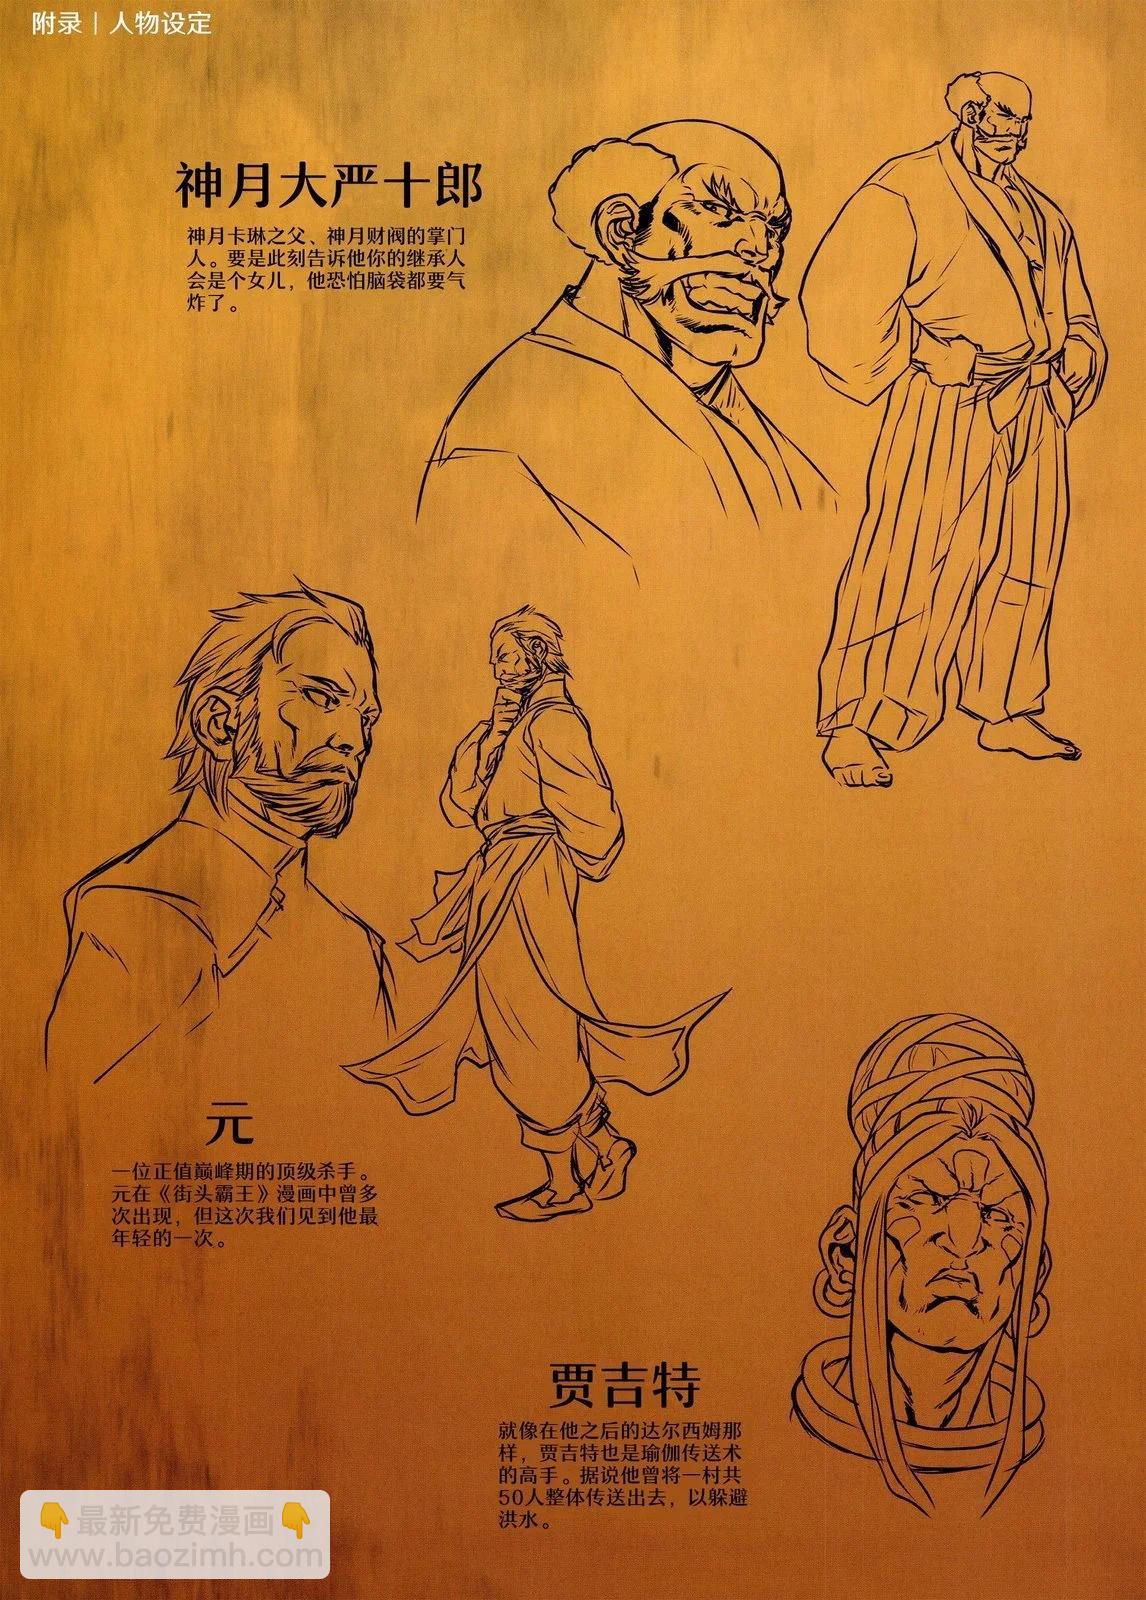 附录｜人物设定
神月大严十郎
神月卡琳之父、神月财阀的掌门
人。要是此刻告诉他你的继承人
会是个女儿，他恐怕脑袋都要气
炸了。
元
一位正值巅峰期的顶级杀手。
元在《街头霸王》漫画中曾多
次出现，但这次我们见到他最
年轻的一次。
贾吉特
就像在他之后的达尔西姆那
样，贾吉特也是瑜伽传送术
的高手。据说他曾将一村共
50人整体传送出去，以躲避
洪水。
👇最新免费漫画👇
www.baozimh.com